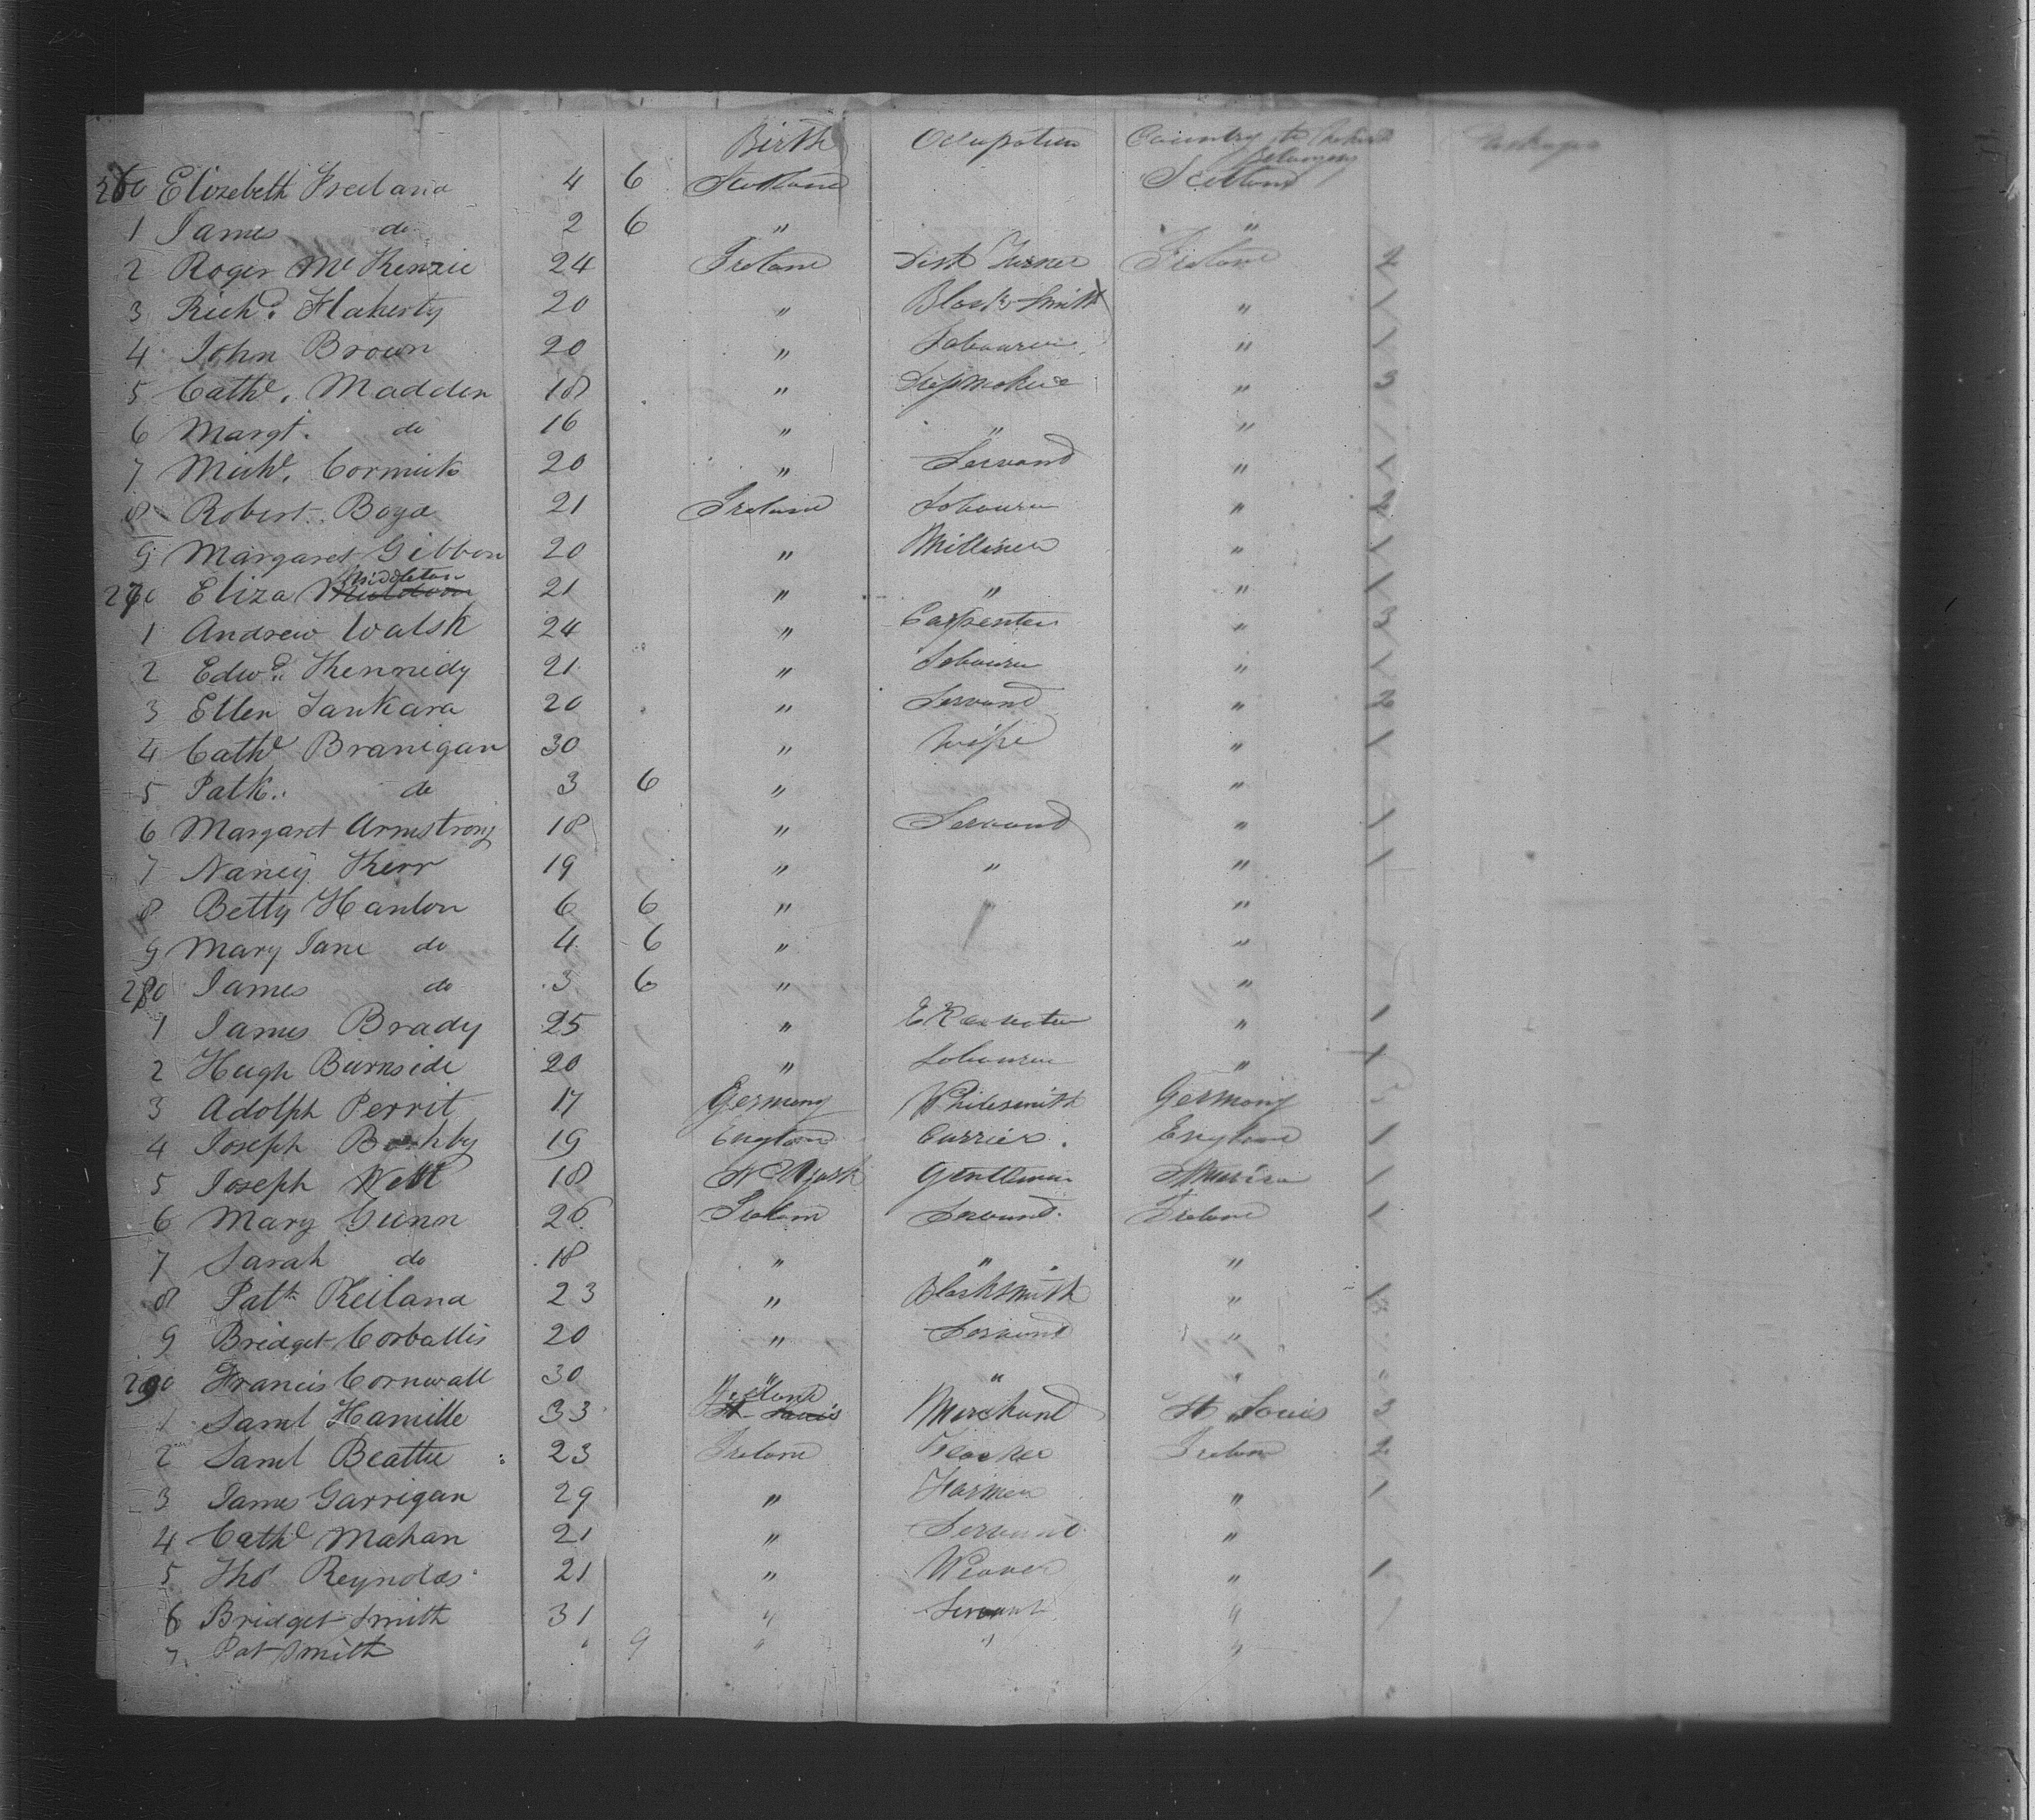 Birth Occupation Country to which belonging Packages
260 Elizebeth Freeland 4 6 Scotland Scotland
1 James do 2 6 " "
2 Roger McKenzie 24 Ireland Turner Ireland 2
3 Richd. Flaherty 20 " Black Smith " 1
4 John Brown 20 " Labourer " 1
5 Cathe. Madden 18 " " 3
6 Margt. do 16 " " " 1
7 Michl. Cormick 20 " Servand " 1
8 Robert Boyd 21 Ireland Labourer " 2
9 Margaret Gibbon 20 " Milliner " 1
270 Eliza Middleton 21 " " " 1
1 Andrew Walsh 24 " Carpenter " 3
2 Edwd. Kennedy 21 " Labourer " 1
3 Ellen Jankara 20 " Servand " 2
4 Cathe Branigan 30 " Wife " 1
5 Patk. do 3 6 " "
6 Margaret Armstrong 18 " Servand " 1
7 Nancy Kerr 19 " " " 1
8 Betty Hanlon 6 6 " "
9 Mary Jane do 4 6 " "
280 James do 3 6 " "
1 James Brady 25 " " 1
2 Hugh Burnside 20 " Labourer " 1
3 Adolph Perrit 17 Germany Whitesmith Germany
4 Joseph 19 England Currier England 1
5 Joseph 18 N York Gentleman America 1
6 Mary Gunn 26 Ireland Servand Ireland 1
7 Sarah do 18 " " "
8 Patk Keiland 23 " Blacksmith " 1
9 Bridget Corballis 20 " Servand "
290 Francis Cornwall 30 " " "
1 Saml Hamille 33 St Louis Merchand St Louis 3
2 Saml Beattie 23 Ireland Ireland 2
3 James Garrigan 29 " Farmer " 1
4 Cathe Mahan 21 " Servand "
5 Thos Reynolds 21 " Weaver " 1
6 Bridget Smith 31 " Servant "
7 Pat Smith " 9 " " "